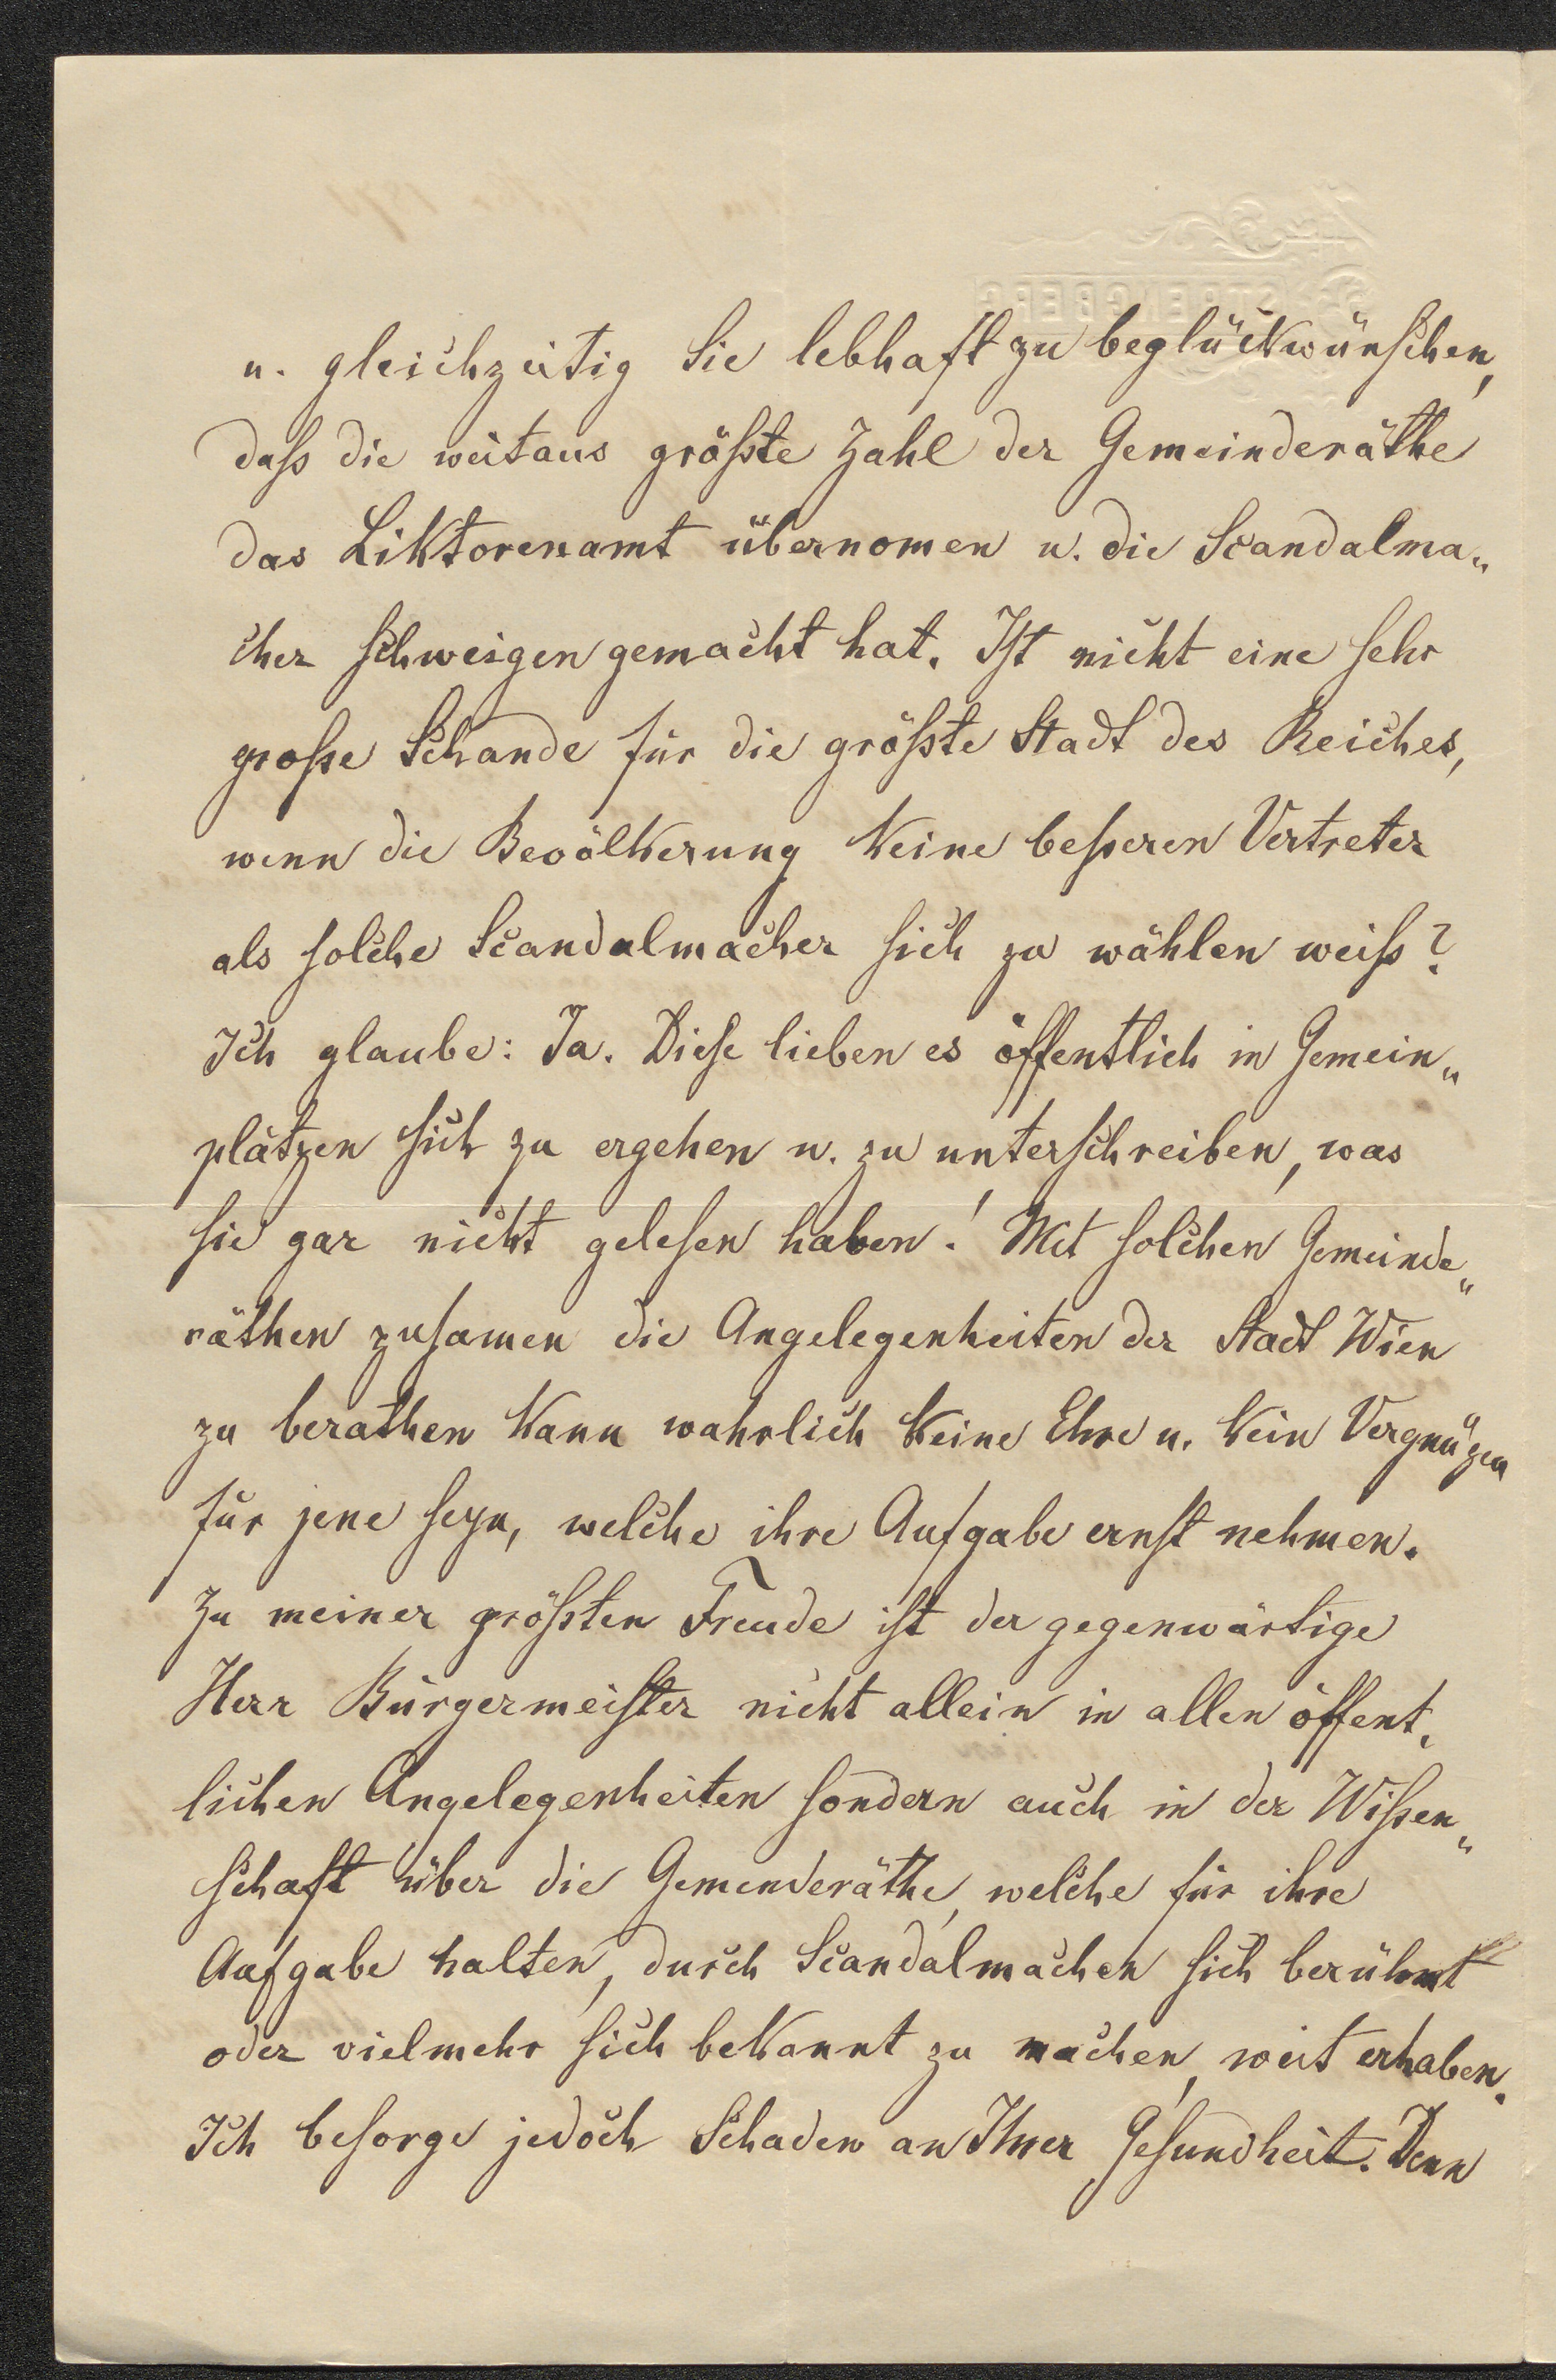 u. gleichzeitig Sie lebhaft zu beglückwünschen,
daß die weitaus größte Zahl der Gemeinderäthe
das Liktorenamt übernomen u. die Scandalma„
cher schweigen gemacht hat. Ist nicht eine sehr
große Schande für die größte Stadt des Reiches,
wenn die Bevölkerung keine beßeren Vertreter
als solche Scandalmacher sich zu wählen weiß?
Ich glaube: Ja. Diese lieben es öffentlich in Gemein„
plätzen sich zu ergehen u. zu unterschreiben, was
sie gar nicht gelesen haben! Mit solchen Gemeinde„
räthen zusamen die Angelegenheiten der Stadt Wien
zu berathen kann wahrlich keine Ehre u. kein Vergnügen
für jene seyn, welche ihre Aufgabe ernst nehmen.
Zu meiner größten Freude ist der gegenwärtige
Herr Bürgermeister nicht allein in allen öffent„
lichen Angelegenheiten sondern auch in der Wißen„
schaft über die Gemenderäthe, welche für ihre
Aufgabe halten, durch Scandalmachen sich berühmt
oder vielmehr sich bekannt zu machen, weit erhaben.
Ich besorge jedoch Schaden an Ihrer Gesundheit. Denn